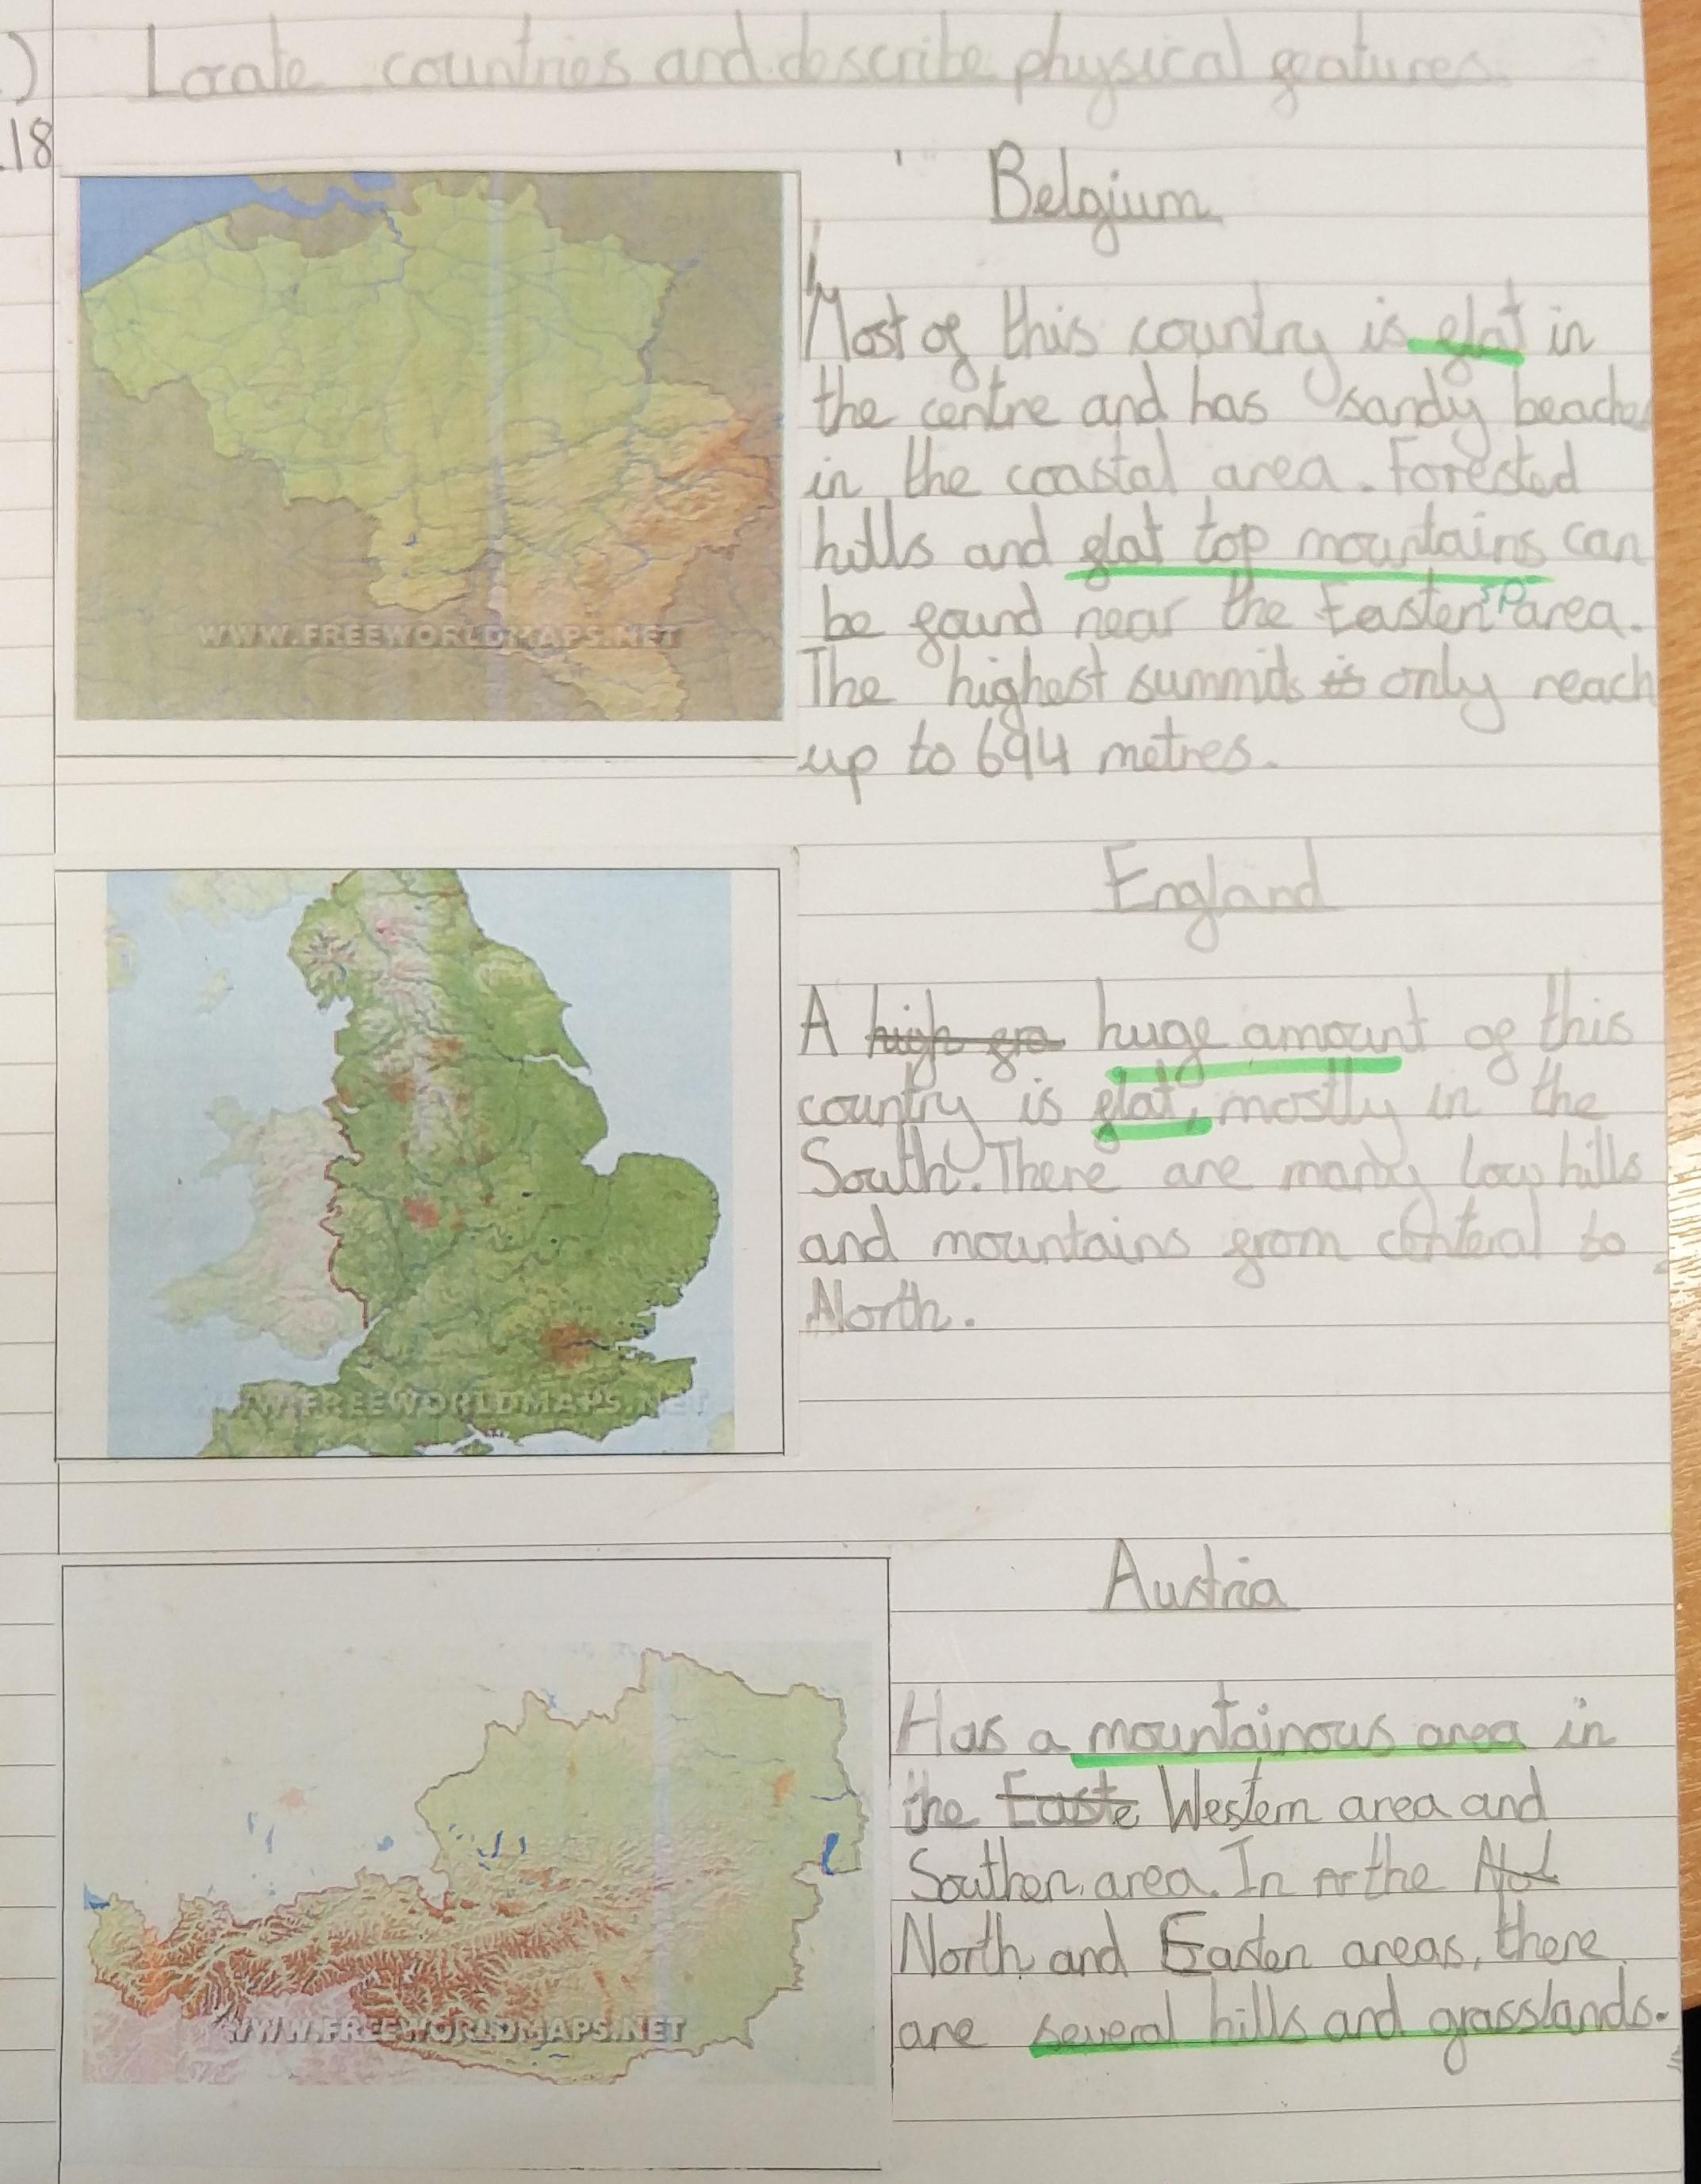 ) Locate countries and describe physical features.
.18
Belgium
Most of this country is flat in
the centre and has sandy beaches
in the coastal area. Forested
hills and flat top mountains can
be found near the Easten sp area.
The highest summits is only reach
up to 694 metres.
WWW.FREEWORLDMAPS.NET
England
A high gra huge amount of this
country is flat, mostly in the
South. There are many low hills
and mountains from centeral to
North.
WWW.FREEWORLDMAPS.NET
Austria
Has a mountainous area in
the Easte Western area and
Southen area. In the
North and Easten areas, there
are several hills and grasslands.
WWW.FREEWORLDMAPS.NET